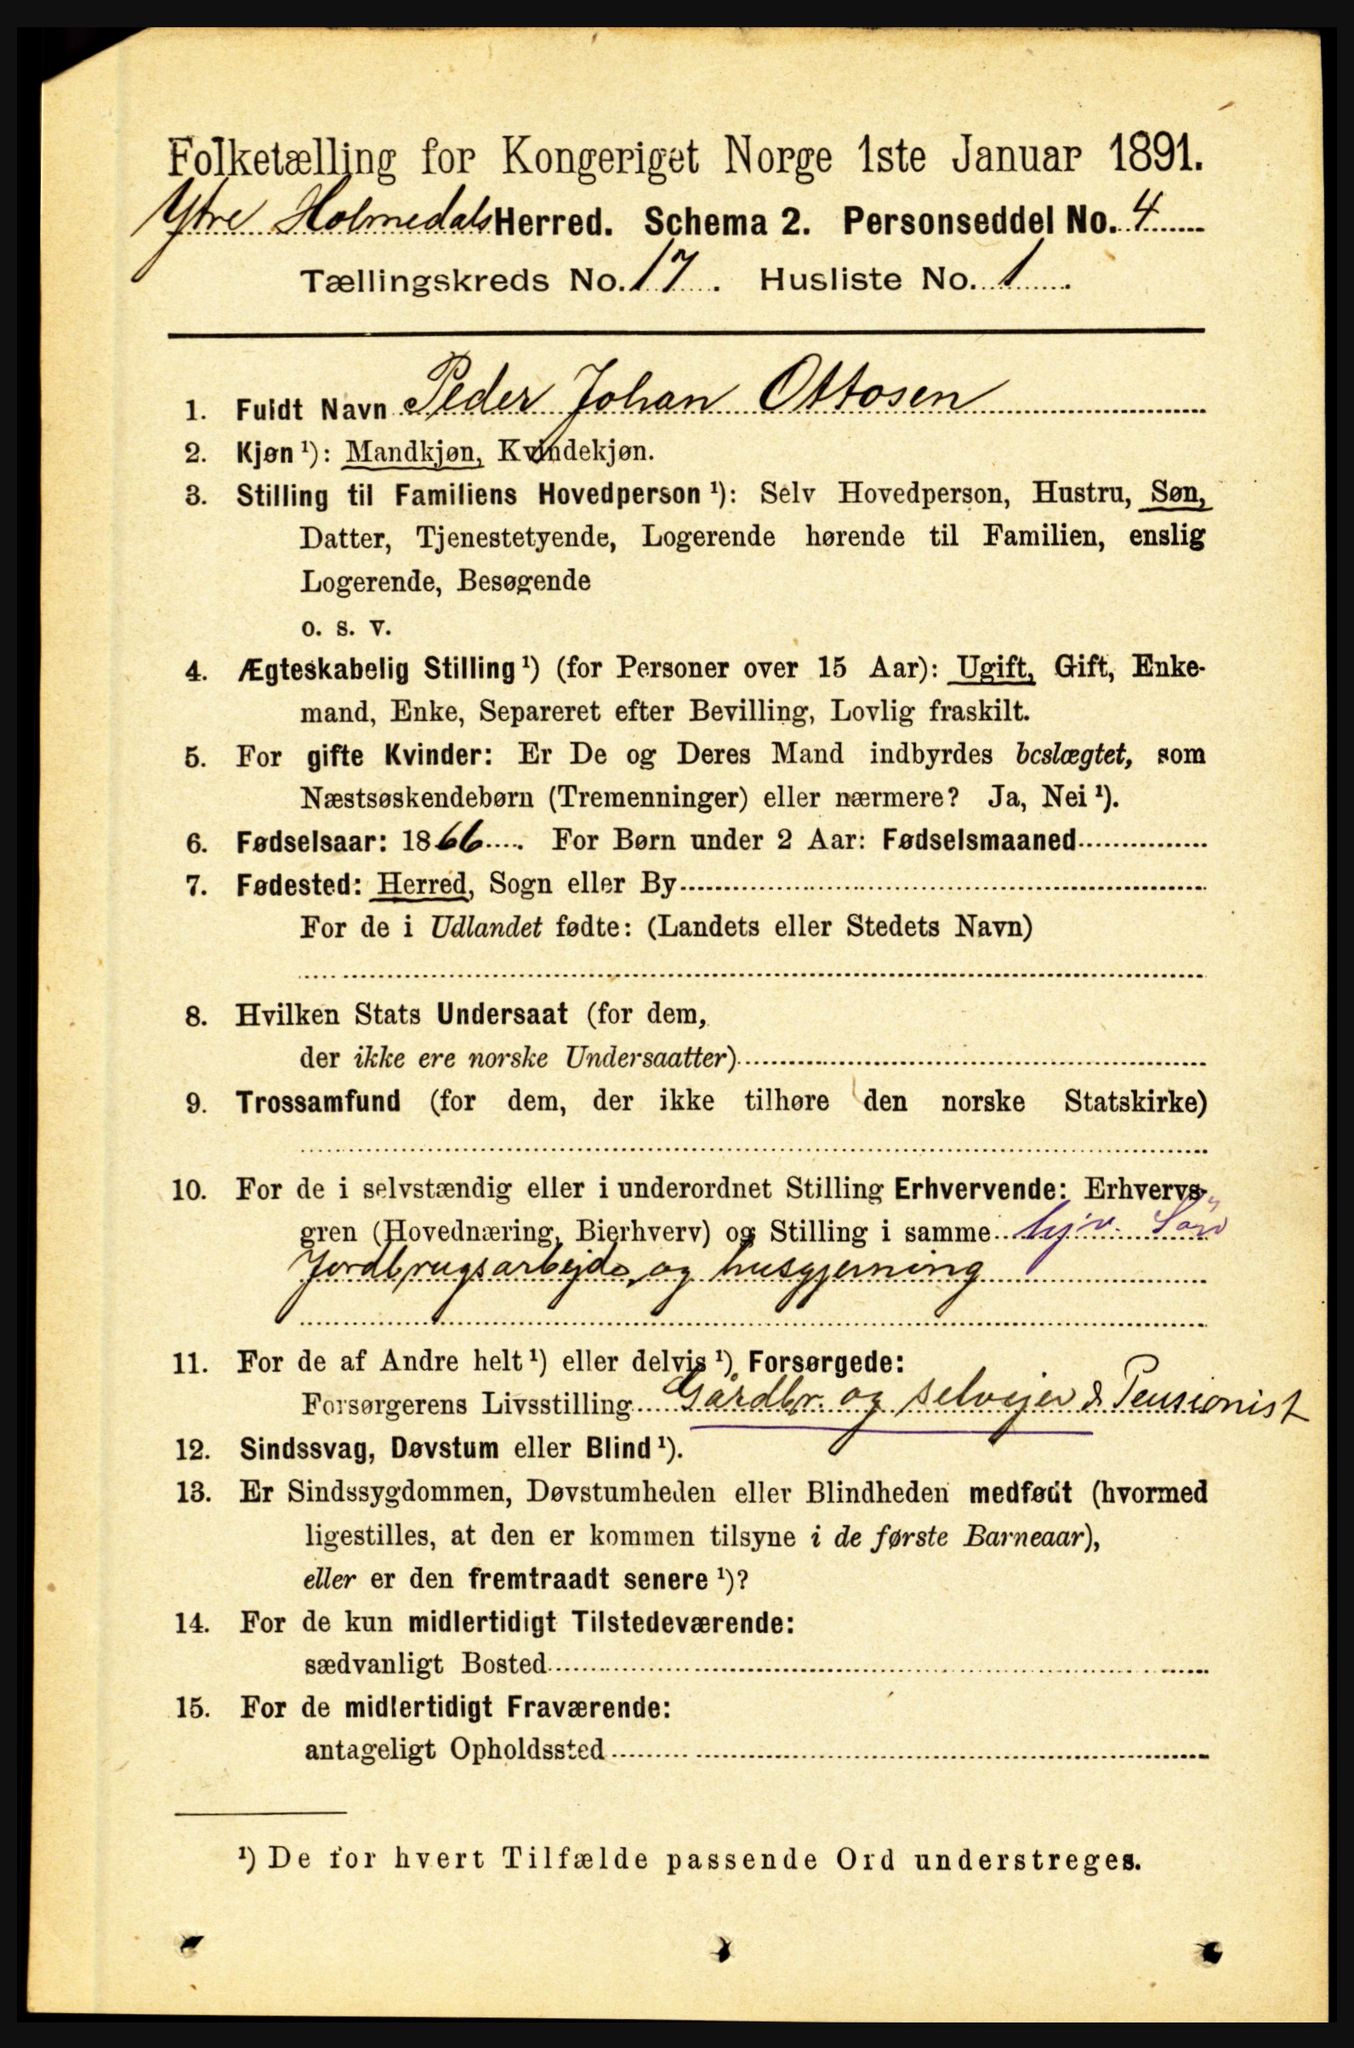 Folketælling for Kongeriget Norge 1ste Januar 1891.
Ytre Holmedals Herred. Schema 2. Personseddel No. 4
Tællingskreds No. 17. Husliste No. 1.
1. Fuldt Navn Peder Johan Ottosen
2. Kjøn ¹): Mandkjøn, Kvindekjøn.
3. Stilling til Familiens Hovedperson ¹): Selv Hovedperson, Hustru, Søn,
Datter, Tjenestetyende, Logerende hørende til Familien, enslig
Logerende, Besøgende
o. s. v.
4. Ægteskabelig Stilling ¹) (for Personer over 15 Aar): Ugift, Gift, Enke-
mand, Enke, Separeret efter Bevilling, Lovlig fraskilt.
5. For gifte Kvinder: Er De og Deres Mand indbyrdes beslægtet, som
Næstsøskendebørn (Tremenninger) eller nærmere? Ja, Nei ¹).
6. Fødselsaar: 1866. For Børn under 2 Aar: Fødselsmaaned
7. Fødested: Herred, Sogn eller By
For de i Udlandet fødte: (Landets eller Stedets Navn)
8. Hvilken Stats Undersaat (for dem,
der ikke ere norske Undersaatter)
9. Trossamfund (for dem, der ikke tilhøre den norske Statskirke)
10. For de i selvstændig eller i underordnet Stilling Erhvervende: Erhvervs-
gren (Hovednæring, Bierhverv) og Stilling i samme hjv. Søn
Jordbrugsarbejde og husgjerning
11. For de af Andre helt ¹) eller delvis ¹) Forsørgede:
Forsørgerens Livsstilling Gårdbr. og selvejer & Pensionist
12. Sindssvag, Døvstum eller Blind ¹).
13. Er Sindssygdommen, Døvstumheden eller Blindheden medfødt (hvormed
ligestilles, at den er kommen tilsyne i de første Barneaar),
eller er den fremtraadt senere ¹)?
14. For de kun midlertidigt Tilstedeværende:
sædvanligt Bosted
15. For de midlertidigt Fraværende:
antageligt Opholdssted
¹) De for hvert Tilfælde passende Ord understreges.